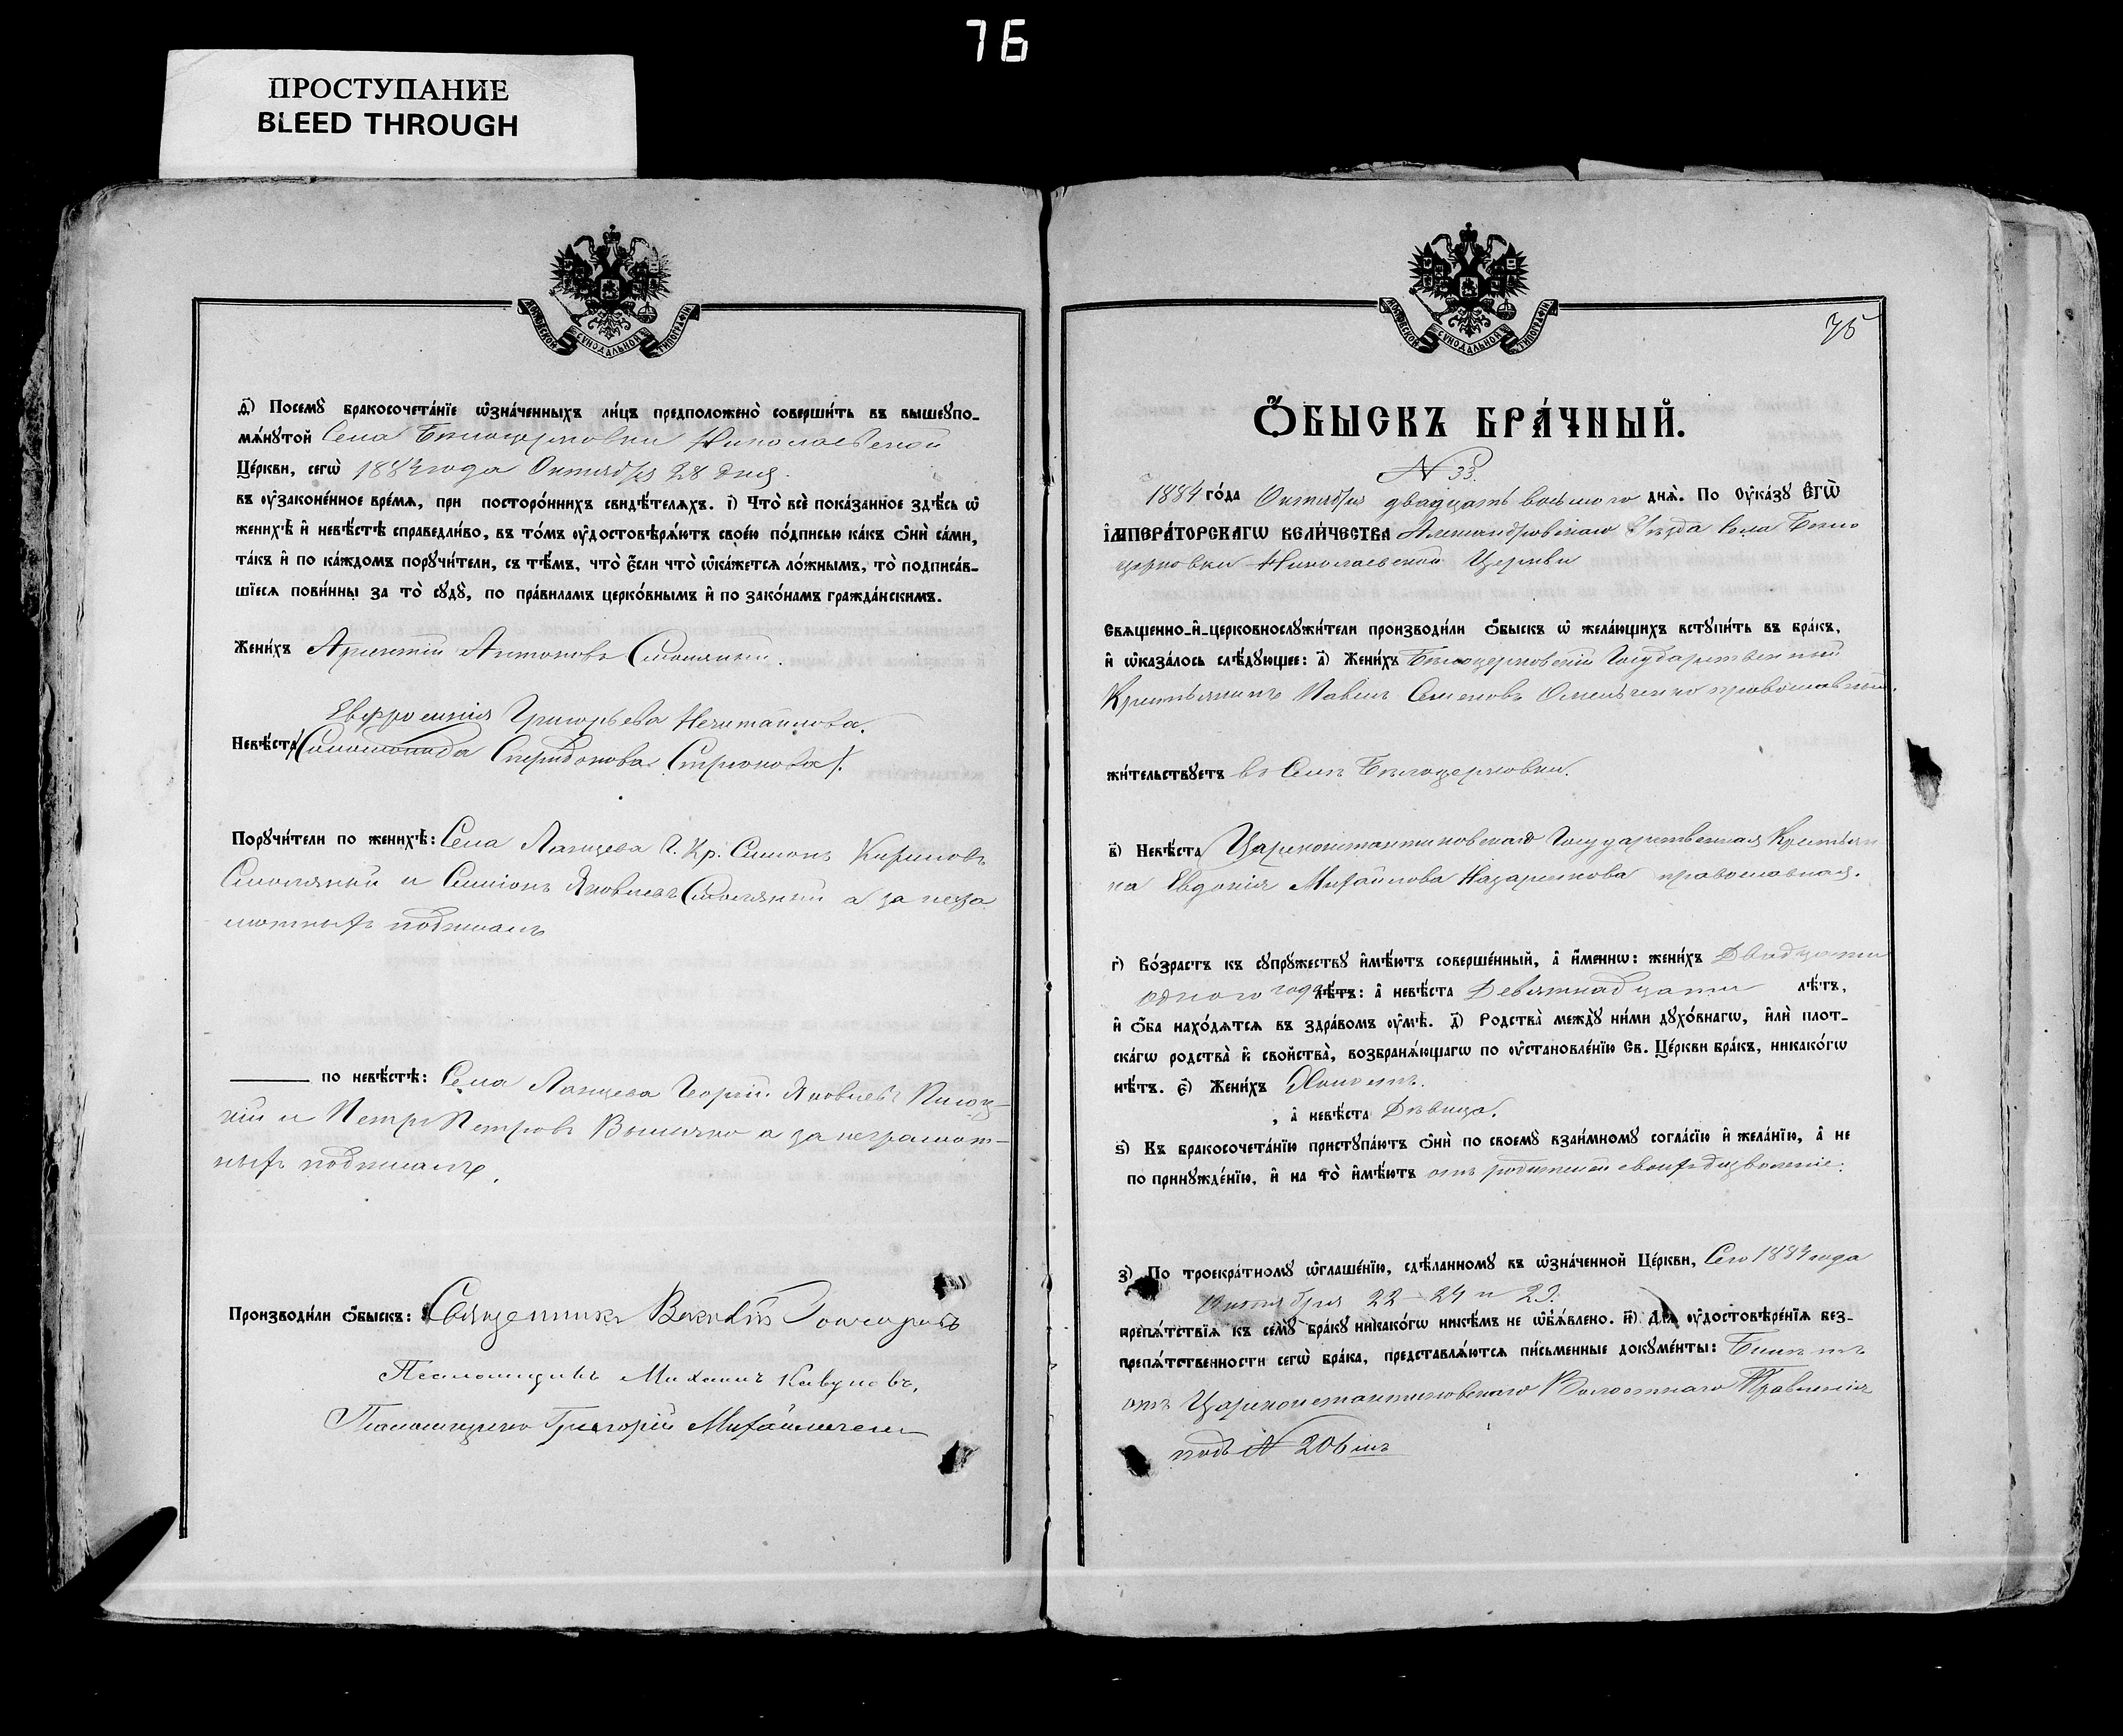 76
ПРОСТУПАНИЕ
BLEED THROUGH
МОСКОВСКОЙ СѴНОДАЛЬНОЙ ТИПОГРАФІИ
д҃) Посемꙋ̀ бракосочета́нїе ѡ҆зна́ченныхъ ли́цъ предположено̀ соверши́ть въ вышеꙋпо-
мѧ́нꙋтой Села Белоцерковки Николаевской
Це́ркви, сегѡ̀ 1884 года Октября 28 дня.
въ ᲂу҆законе́нное вре́мѧ, при посторо́ннихъ свидѣ́телѧхъ. і҃) Что̀ всѐ пока́занное здѣ́сь ѡ҆
женихѣ̀ и҆ невѣ́стѣ справедли́во, въ то́мъ ᲂу҆достовѣрѧ́ютъ свое́ю по́дписью ка́къ ѻ҆нѝ са́ми,
та́къ и҆ по ка́ждомъ порꙋчи́тели, съ тѣ́мъ, что̀ є҆́сли что̀ ѡ҆ка́жетсѧ ло́жнымъ, то̀ подписа́в-
шїесѧ пови́нны за то̀ сꙋдꙋ̀, по пра́виламъ церко́внымъ и҆ по зако́намъ гражда́нскимъ.
Жени́хъ Арсентій Антоновъ Смолянкій.
Евфросинія Григорьева Нечитайлова.
Невѣ́ста Спиридонова
Порꙋчи́тели по женихѣ̀: Села Г. Кр. Симонъ Кириловъ
Смолянкій и Симіонъ Яковлевъ Смолянкій а за негра
мотныхъ подписалъ
по невѣ́стѣ: Села Георгій Яковлевъ
и Петръ Петровъ а за неграмот-
ныхъ подписалъ.
Производи́ли ѻ҆́быскъ: Священникъ Гончаровъ
Псаломщикъ Михаилъ Кавуновъ,
Григорій
МОСКОВСКОЙ СѴНОДАЛЬНОЙ ТИПОГРАФІИ
75
Ѻ҆́БЫСКЪ БРА́ЧНЫЙ.
N 33.
1884 го́да Октября двадцать восьмого днѧ̀. По Оу҆ка́зꙋ Є҆гѡ̀
І҆мпера́торскагѡ Вели́чества Александровскаго Уѣзда Села Бело
церковки Николаевской Церкви
Свѧщенно-и҆-церковнослꙋжи́тели производи́ли ѻ҆́быскъ ѡ҆ жела́ющихъ встꙋпи́ть въ бра́къ,
и҆ ѡ҆каза́лось слѣ́дꙋющее: а҃) Жени́хъ Белоцерковскій Государственный
Крестьянинъ Павелъ Семеновъ Омельченко православный.
жи́тельствꙋетъ въ Селѣ Белоцерковки.
в҃) Невѣ́ста Цареконстантиновская Государственная Крестьян
ка Евдокія Михайлова Назаренкова православная.
г҃) Во́зрастъ къ сꙋпрꙋ́жествꙋ и҆мѣ́ютъ соверше́нный, а҆ и҆́меннѡ: жени́хъ Двадцати
одного года лѣ́тъ: а҆ невѣ́ста Девятнадцати лѣ́тъ,
и҆ ѻ҆́ба нахо́дѧтсѧ въ здра́вомъ ᲂу҆мѣ̀. д҃) Родства̀ междꙋ̀ ни́ми дꙋхо́внагѡ, и҆лѝ плот-
ска́гѡ родства̀ и҆ сво́йства̀, возбранѧ́ющагѡ по ᲂу҆становле́нїю Св. Це́ркви бра́къ, никако́гѡ
нѣ́тъ. є҃) Жени́хъ Холостъ.
, а҆ невѣ́ста Дѣвица.
ѕ҃) Къ бракосочета́нїю пристꙋпа́ютъ ѻ҆нѝ по своемꙋ̀ взаи́мномꙋ согла́сїю и҆ жела́нїю, а҆ не
по принꙋжде́нїю, и҆ на то̀ и҆мѣ́ютъ отъ родителей своихъ дозволеніе.
з҃) По троекра́тномꙋ ѡ҆глаше́нїю, сдѣ́ланномꙋ въ ѡ҆зна́ченной Це́ркви, Сего 1884 года
Октября 22 – 24 и
препѧ́тствїѧ къ семꙋ̀ бра́кꙋ никако́гѡ никѣ́мъ не ѡ҆б̾ѧ́влено. и҃) Длѧ̀ ᲂу҆достовѣре́нїѧ без-
препѧ́тственности сегѡ̀ бра́ка, представлѧ́ютсѧ пи́сьменные докꙋме́нты: Билетъ
отъ Цареконстантиновскаго Волостнаго Правленія
подъ N 206